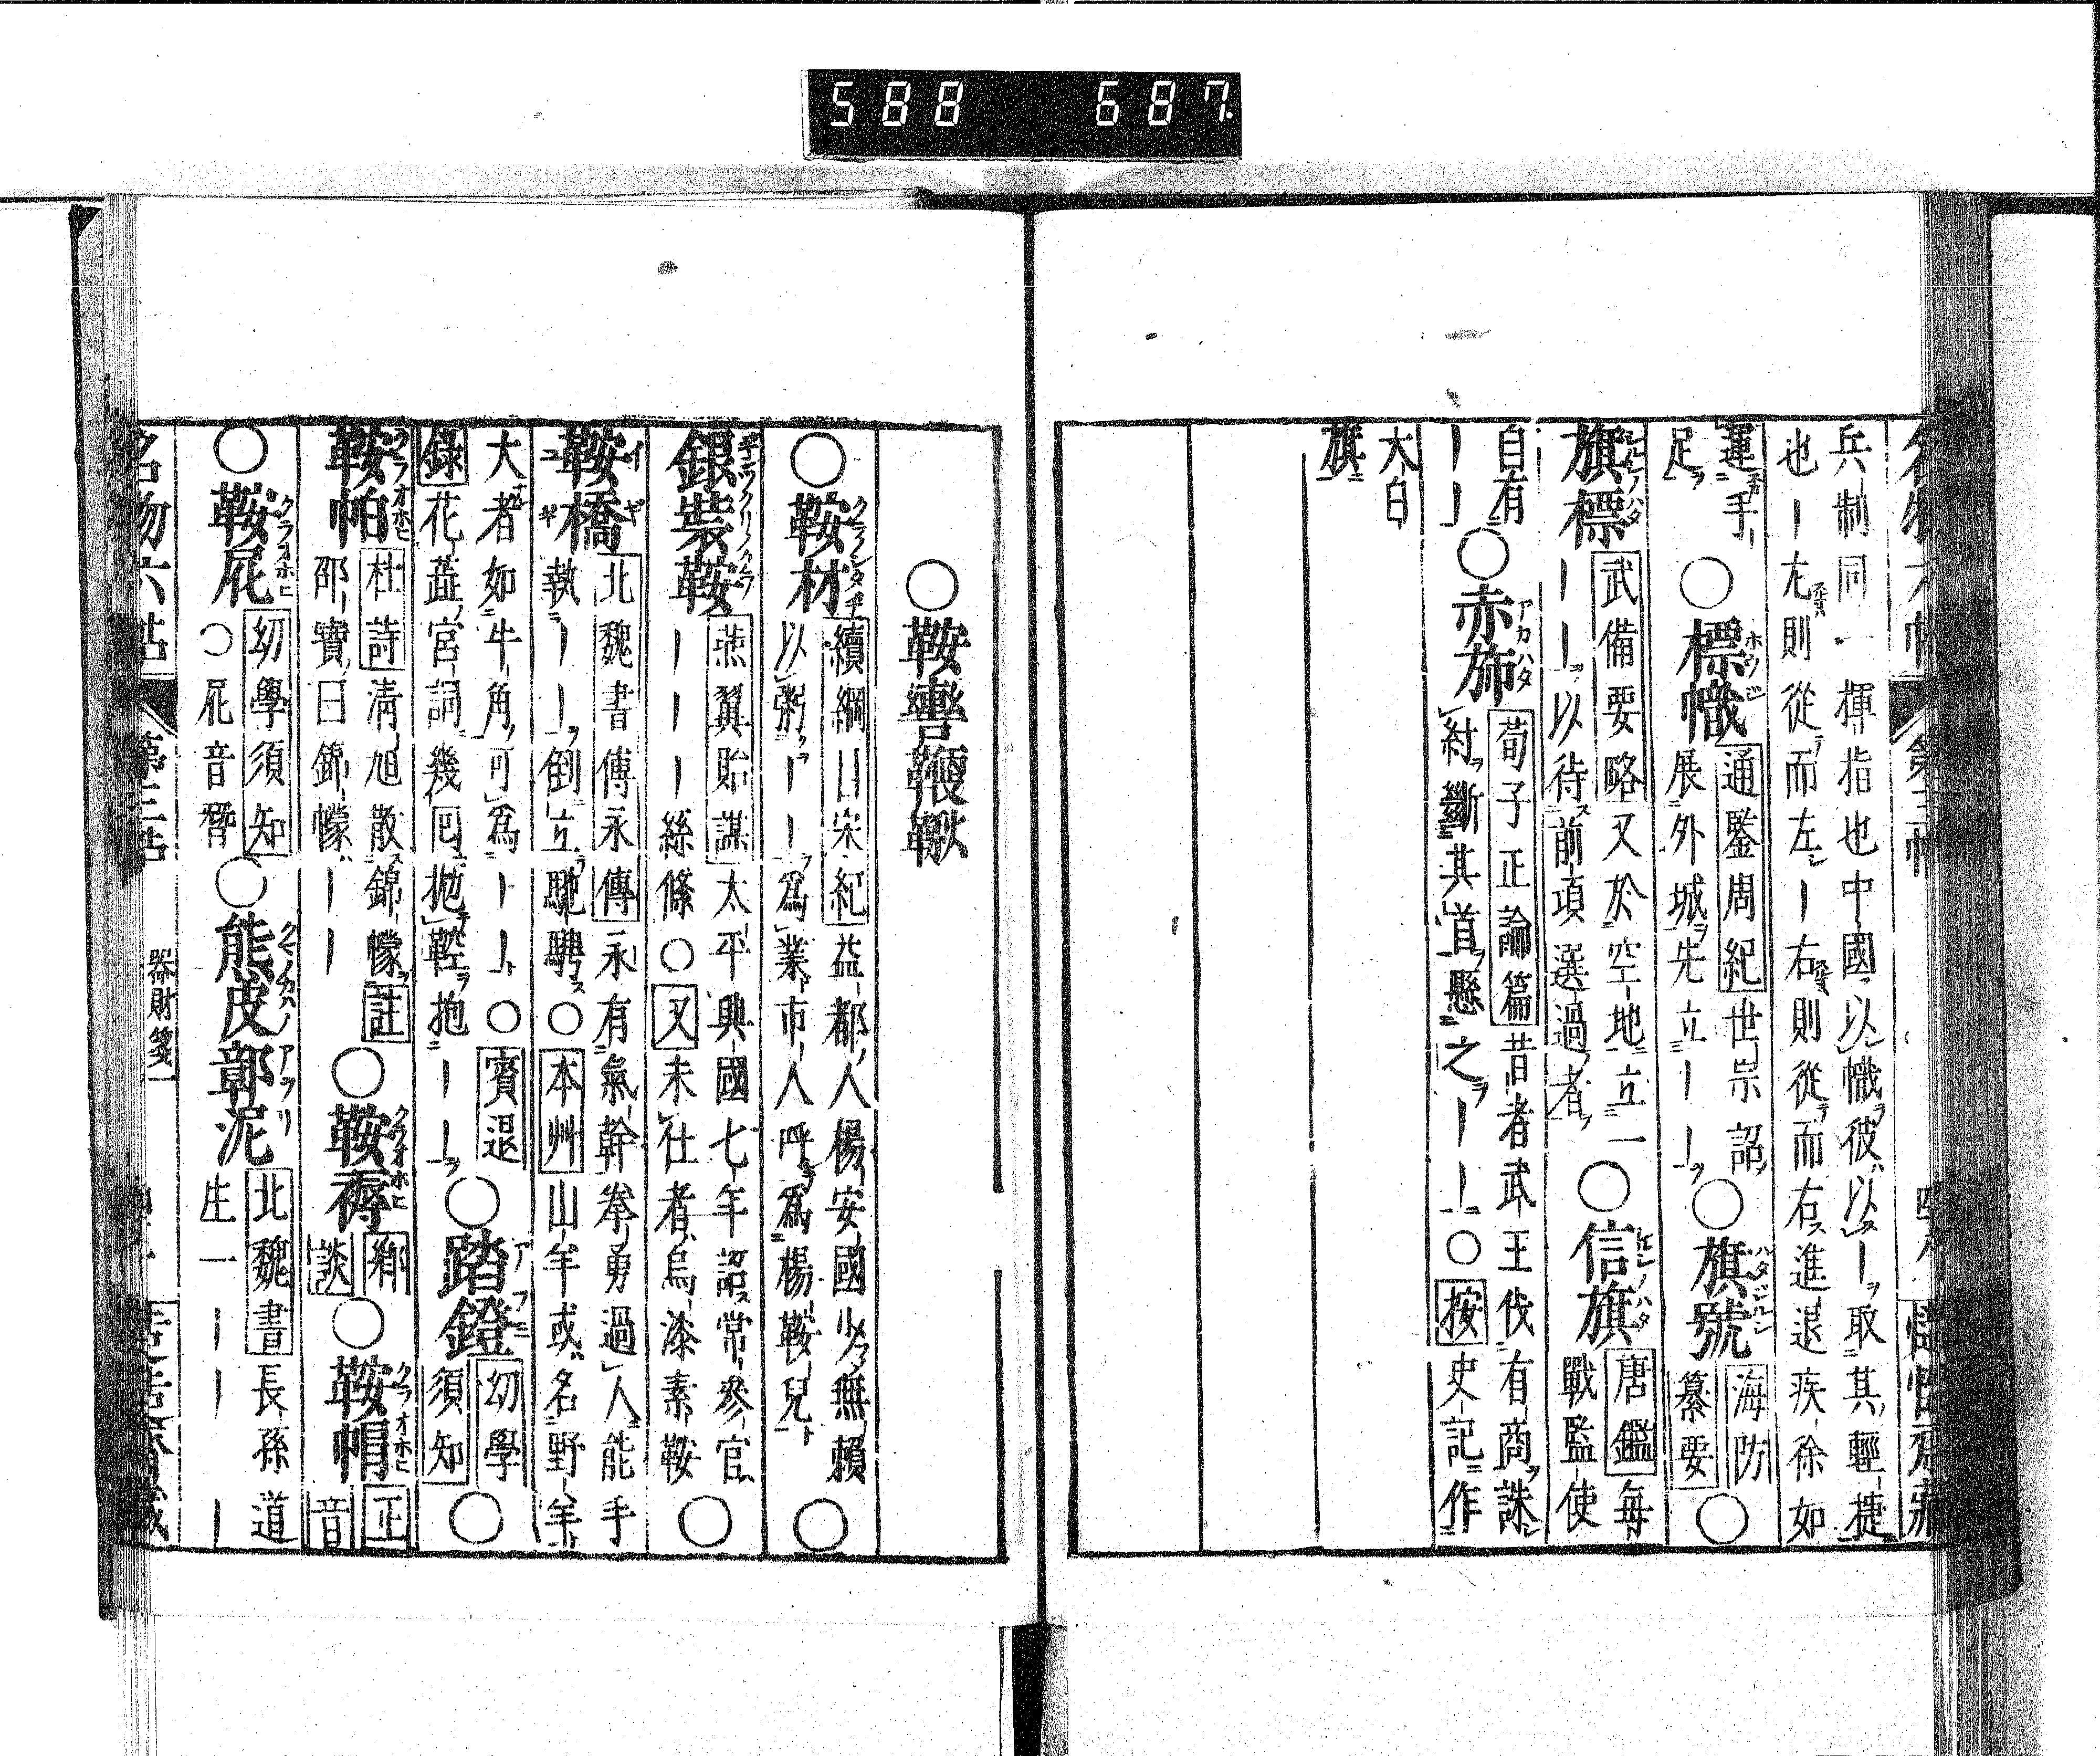 588 687
兵制同一揮指也中國以幟彼以ー取其輕捷
也ー左則從而左ー右則從而右進退疾徐如
運手
足
○標幟
通鑒周紀世宗詔
展外城先立ーー
○旗號
海防
纂要
○
旗標
武備要略又於空地立一
ーー以待前項選過者
○信旗
唐鑑每
戰監使
自有
ーー
○赤斾
荀子正論篇昔者武王伐有商誅
紂斷其首懸之ーー○按史記作
大白
旗
○鞍轡鞭鞦
○鞍材
續綱目宋紀益都人楊安國少無賴
以粥ーー為業市人呼為楊鞍兒
○
銀裝鞍
燕翼貽謀太平興國七年詔常參官
ーーー絲絛○又未仕者烏漆素鞍
○
鞍橋
北魏書傅永傳永有氣幹拳勇過人能手
執ーー倒立馳騁○本艸山羊或名野羊
大者如牛角可為ーー○賓退
錄花蕋宮詞幾回拋鞚抱ーー
○踏鐙
幼學
須知
○
鞍帕
杜詩清旭散錦幪註
邵寶曰錦幪ーー
○鞍褥
鄉
談
○鞍帽
正
音
○鞍屜
幼學須知
○屜音
○熊皮鄣泥
北魏書長孫道
生一ーーー
名物六帖
第三帖
器財箋一